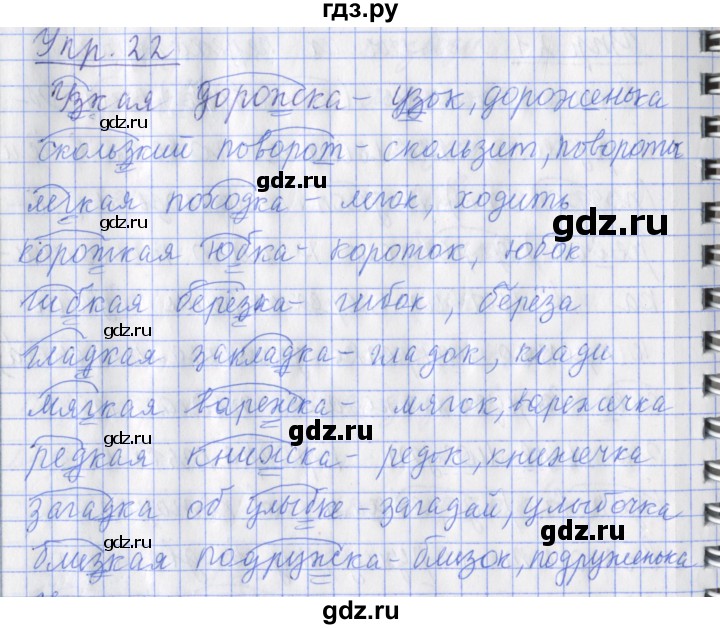 гдз.ру
Упр. 22
Узкая дорожка - узок, дороженька
скользкий поворот - скользит, повороты
лёгкая походка - легок, ходить
короткая юбка - короток, юбок
гибкая берёзка - гибок, берёза
гладкая закладка - гладок, клади
мягкая варежка - мягок, варежечка
редкая книжка - редок, книжечка
загадка об улыбке - загадай, улыбочка
близкая подружка - близок, подруженька
gdz.ru
gdz.ru
gdz.ru
gdz.ru
gdz.ru
gdz.ru
gdz.ru
gdz.ru
gdz.ru
gdz.ru
gdz.ru
gdz.ru
gdz.ru